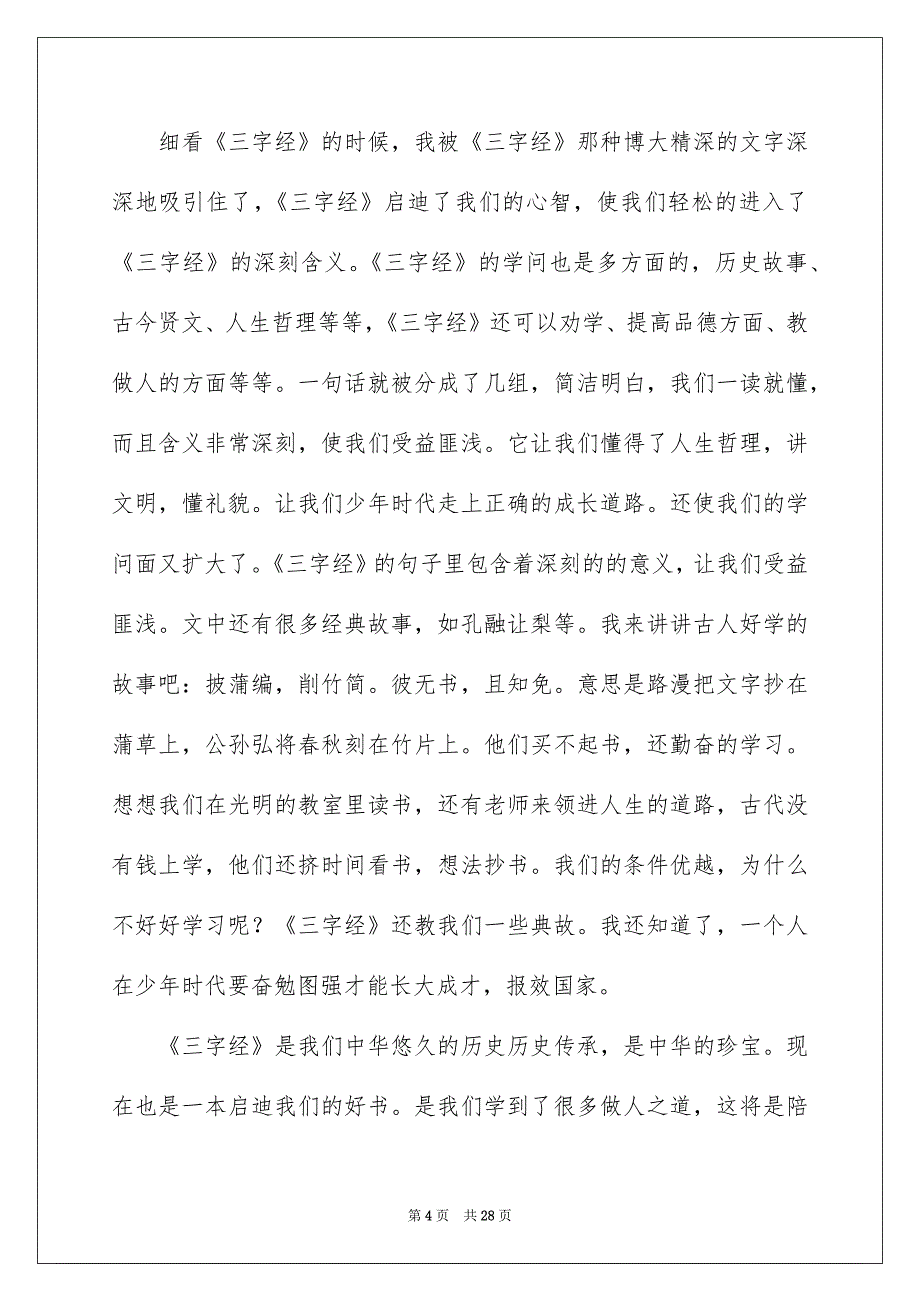 细看《三字经》的时候，我被《三字经》那种博大精深的文字深
深地吸引住了，《三字经》启迪了我们的心智，使我们轻松的进入了
《三字经》的深刻含义。《三字经》的学问也是多方面的，历史故事、
古今贤文、人生哲理等等，《三字经》还可以劝学、提高品德方面、教
做人的方面等等。一句话就被分成了几组，简洁明白，我们一读就懂，
而且含义非常深刻，使我们受益匪浅。它让我们懂得了人生哲理，讲
文明，懂礼貌。让我们少年时代走上正确的成长道路。还使我们的学
问面又扩大了。《三字经》的句子里包含着深刻的的意义，让我们受益
匪浅。文中还有很多经典故事，如孔融让梨等。我来讲讲古人好学的
故事吧：披蒲编，削竹简。彼无书，且知免。意思是路漫把文字抄在
蒲草上，公孙弘将春秋刻在竹片上。他们买不起书，还勤奋的学习。
想想我们在光明的教室里读书，还有老师来领进人生的道路，古代没
有钱上学，他们还挤时间看书，想法抄书。我们的条件优越，为什么
不好好学习呢？《三字经》还教我们一些典故。我还知道了，一个人
在少年时代要奋勉图强才能长大成才，报效国家。
《三字经》是我们中华悠久的历史历史传承，是中华的珍宝。现
在也是一本启迪我们的好书。是我们学到了很多做人之道，这将是陪
第 4 页 共 28 页